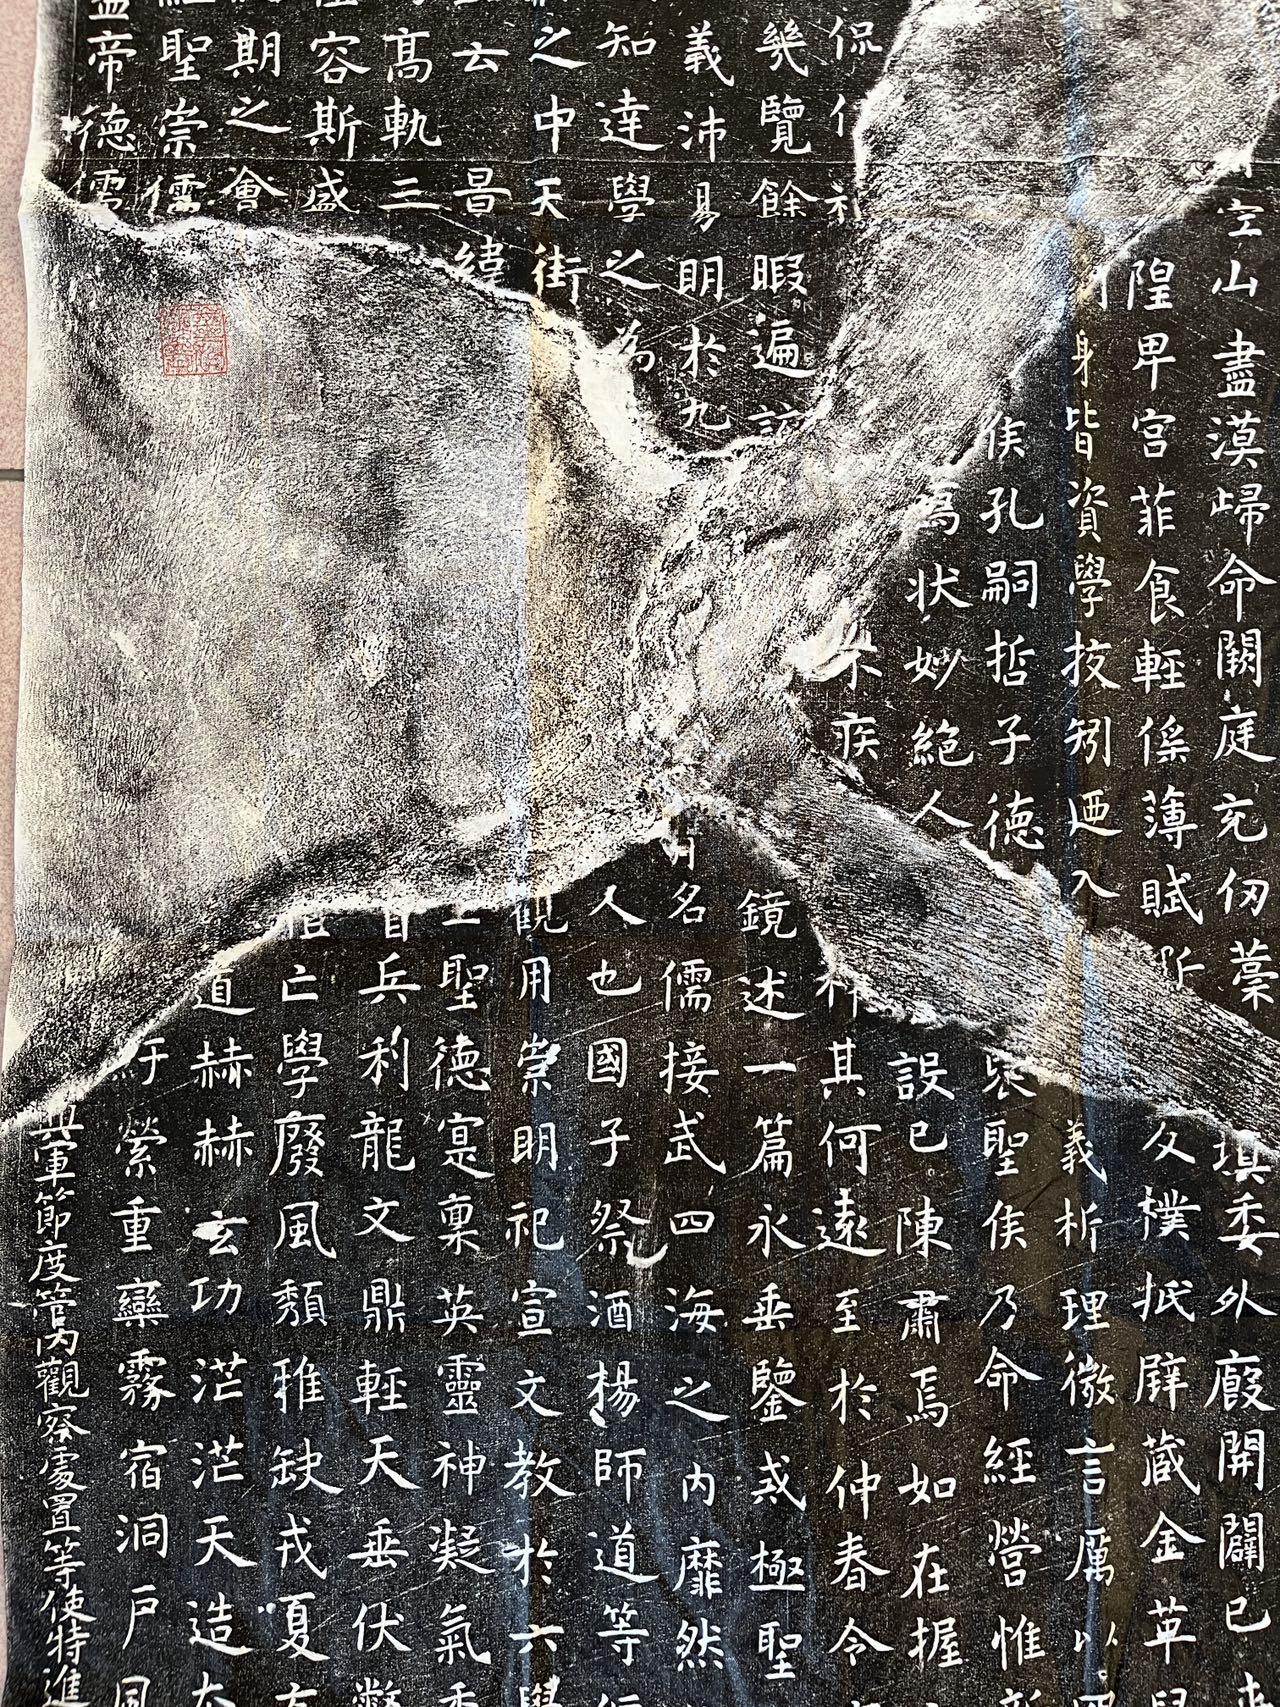 空山盡漠歸命闕庭充仞藁 填委外廄開闢已
隍卑宮菲食輕徭薄賦 反樸抵璧藏金革
身皆資學挍矧迺入 義析理微言厲以
侯孔嗣哲子德 聖侯乃命經營惟
為狀妙絕人 設已陳肅焉如在握
侃 不疾 其何遠至於仲春令
幾覽餘暇遍 鏡述一篇永垂鑒戒極聖
義沛易明於九 名儒接武四海之內靡然
知達學之為 人也國子祭酒楊師道等
之中天街 觀用崇明祀宣文教於六學
云昌緯 聖德寔稟英靈神凝氣
高軌三 首兵利龍文鼎輕天垂伏
容斯盛 亡學廢風頹雅缺戎夏
期之會 道赫赫玄功茫茫天造
聖崇儒 紆縈重欒霧宿洞戶
帝德儒
軍節度管內觀察處置等使特進